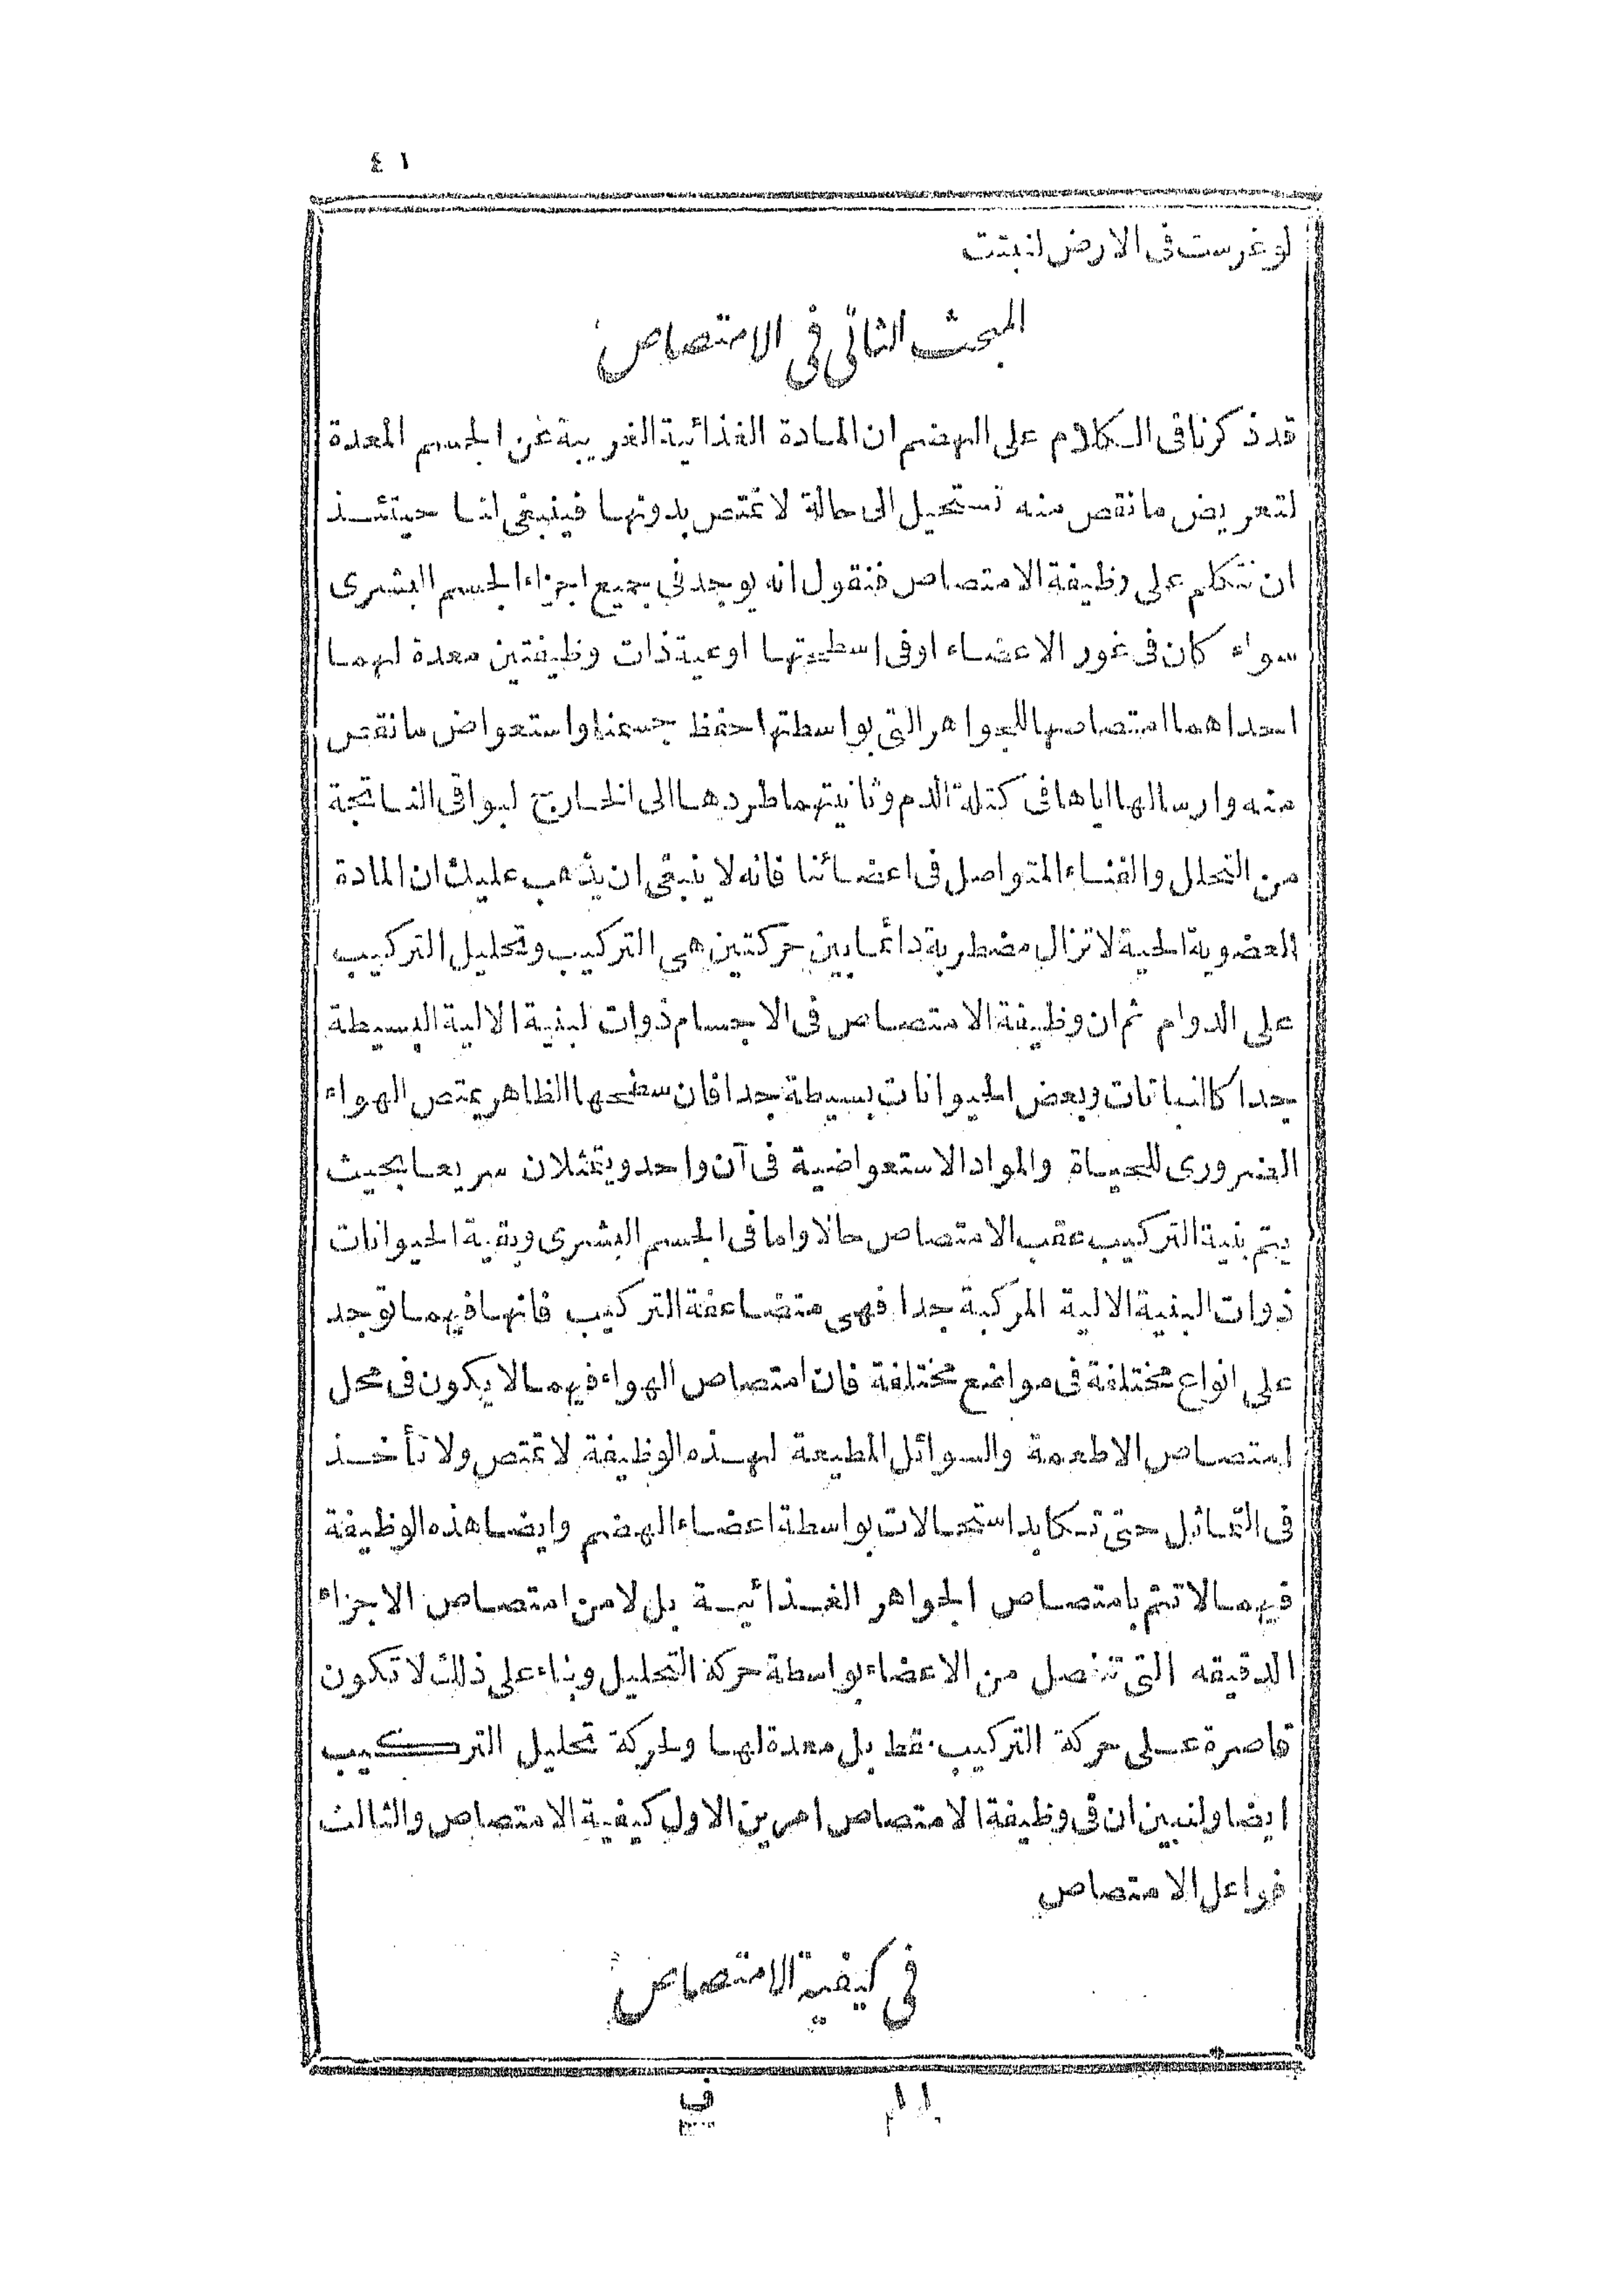 ٤١
لو غرست فى الارض لنبتت
المبحث الثانى فى الامتصاص
قد ذكرنا فى الكلام على الهضم ان المادة الغذائية الغريبة عن الجسم المعدة
لتعويض ما نقص منه تستحيل الى حالة لا تمتص بدونها فينبغى لنا حينئذ
ان نتكلم على وظيفة الامتصاص فنقول انه يوجد فى جميع اجزاء الجسم البشرى
سواء كان فى غور الاعضاء او فى اسطحتها اوعية ذات وظيفتين معدة لهما
احداهما امتصاصها للجواهر التى بواسطتها حفظ جسمنا واستعواض ما نقص
منه وارسالها اياها فى كتلة الدم وثانيتهما طردها الى الخارج لبواقى الناتجة
من التحلل والفناء المتواصل فى اعضائنا فانه لا ينبغى ان يذهب عليك ان المادة
العضوية الحية لا تزال مضطربة دائما بين حركتين هى التركيب وتحليل التركيب
على الدوام ثم ان وظيفة الامتصاص فى الاجسام ذوات لبنية الالية البسيطة
جدا كالنباتات وبعض الحيوانات بسيطة جدا فان سطحها الظاهر يمتص الهواء
الضرورى للحياة والمواد الاستعواضية فى آن واحد ويتمثلان سريعا بحيث
يتم بنية التركيب عقب الامتصاص حالا واما فى الجسم البشرى وبقية الحيوانات
ذوات البنية الالية المركبة جدا فهى متضاعفة التركيب فانها فيهما توجد
على انواع مختلفة فى مواضع مختلفة فان امتصاص الهواء فيهما لا يكون فى محل
امتصاص الاطعمة والسوائل المطيعة لهذه الوظيفة لا تمتص ولا تأخذ
فى التماثل حتى تكابد استحالات بواسطة اعضاء الهضم وايضا هذه الوظيفة
فيهما لا تتم بامتصاص الجواهر الغذائية بل لا من امتصاص الاجزاء
الدقيقه التى تنفصل من الاعضاء بواسطة حركة التحليل وبناء على ذلك لا تكون
قاصرة على حركة التركيب فقط بل معدة لها ولحركة تحليل التركيب
ايضا ولنبين ان فى وظيفة الامتصاص امرين الاول كيفية الامتصاص والثالث
فواعل الامتصاص
فى كيفية الامتصاص